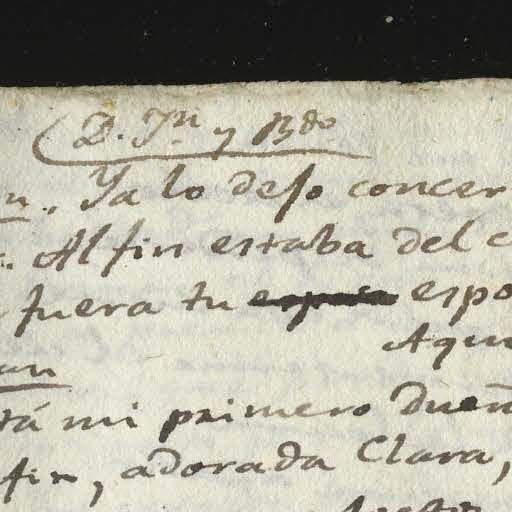 D. Jn y Bdo
n. Ya lo deso concer
. Al fin estaba del c
fuera tu espo
Aqu
an
tá mi primero dueñ
fin, adorada Clara,